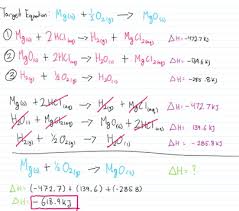 Target Equation: Mg(s) + ½O₂(g) → MgO(s)
① Mg(s) + 2HCl(aq) → H₂(g) + MgCl₂(aq) ΔH = -472.7 kJ
② MgO(s) + 2HCl(aq) → H₂O(l) + MgCl₂(aq) ΔH = -139.6 kJ
③ H₂(g) + ½O₂(g) → H₂O(l) ΔH = -285.8 kJ
Mg(s) + 2HCl(aq) → H₂(g) + MgCl₂(aq) ΔH = -472.7 kJ
H₂O(l) + MgCl₂(aq) → MgO(s) + 2HCl(aq) ΔH = 139.6 kJ
H₂(g) + ½O₂(g) → H₂O(l) ΔH = -285.8 kJ
Mg(s) + ½O₂(g) → MgO(s) ΔH = ?
ΔH = (-472.7) + (139.6) + (-285.8)
ΔH = -618.9 kJ